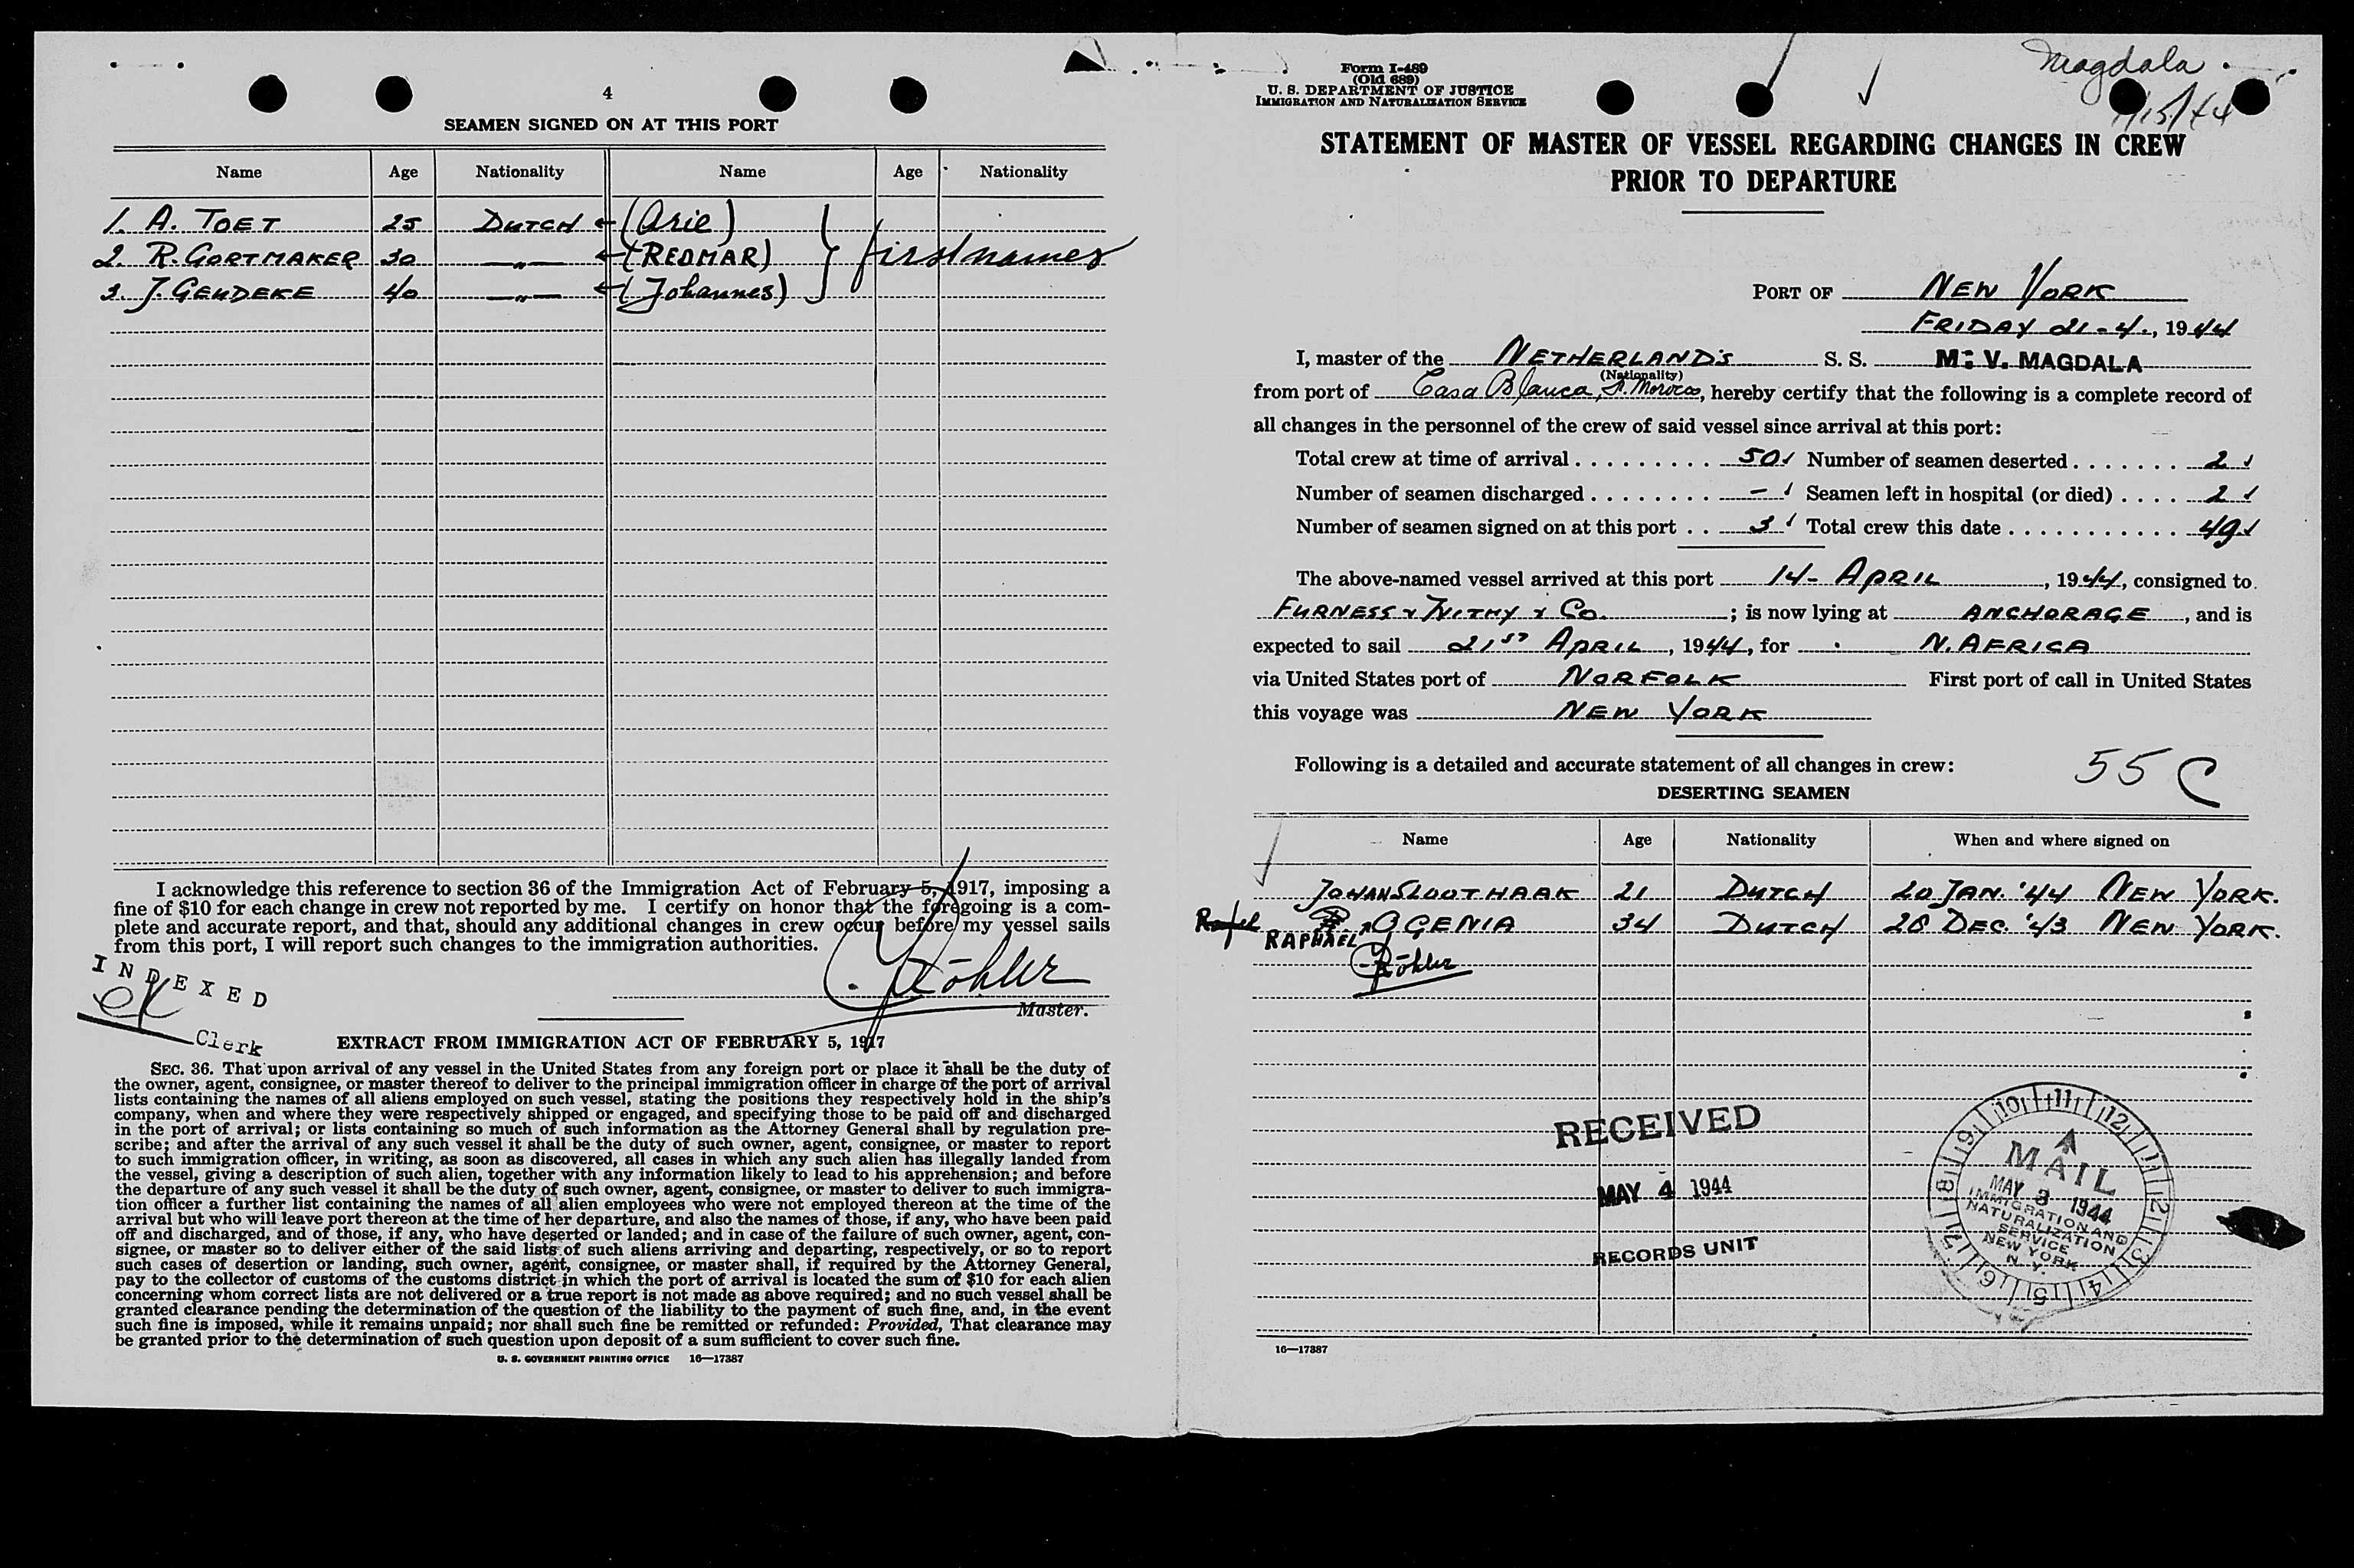 4
SEAMEN SIGNED ON AT THIS PORT
Name Age Nationality Name Age Nationality
1. A. TOET 25 DUTCH ← (Arie)
2. R. GORTMAKER 30 —„— ← (REDMAR)
3. J. GEUDEKE 40 —„— ← (Johannes)
} first names
I acknowledge this reference to section 36 of the Immigration Act of February 5, 1917, imposing a
fine of $10 for each change in crew not reported by me. I certify on honor that the foregoing is a com-
plete and accurate report, and that, should any additional changes in crew occur before my vessel sails
from this port, I will report such changes to the immigration authorities.
INDEXED
Clerk
Köhler
Master.
EXTRACT FROM IMMIGRATION ACT OF FEBRUARY 5, 1917
SEC. 36. That upon arrival of any vessel in the United States from any foreign port or place it shall be the duty of
the owner, agent, consignee, or master thereof to deliver to the principal immigration officer in charge of the port of arrival
lists containing the names of all aliens employed on such vessel, stating the positions they respectively hold in the ship's
company, when and where they were respectively shipped or engaged, and specifying those to be paid off and discharged
in the port of arrival; or lists containing so much of such information as the Attorney General shall by regulation pre-
scribe; and after the arrival of any such vessel it shall be the duty of such owner, agent, consignee, or master to report
to such immigration officer, in writing, as soon as discovered, all cases in which any such alien has illegally landed from
the vessel, giving a description of such alien, together with any information likely to lead to his apprehension; and before
the departure of any such vessel it shall be the duty of such owner, agent, consignee, or master to deliver to such immigra-
tion officer a further list containing the names of all alien employees who were not employed thereon at the time of the
arrival but who will leave port thereon at the time of her departure, and also the names of those, if any, who have been paid
off and discharged, and of those, if any, who have deserted or landed; and in case of the failure of such owner, agent, con-
signee, or master so to deliver either of the said lists of such aliens arriving and departing, respectively, or so to report
such cases of desertion or landing, such owner, agent, consignee, or master shall, if required by the Attorney General,
pay to the collector of customs of the customs district in which the port of arrival is located the sum of $10 for each alien
concerning whom correct lists are not delivered or a true report is not made as above required; and no such vessel shall be
granted clearance pending the determination of the question of the liability to the payment of such fine, and, in the event
such fine is imposed, while it remains unpaid; nor shall such fine be remitted or refunded: Provided, That clearance may
be granted prior to the determination of such question upon deposit of a sum sufficient to cover such fine.
U. S. GOVERNMENT PRINTING OFFICE 16—17387
Form I-489
(Old 689)
U. S. DEPARTMENT OF JUSTICE
IMMIGRATION AND NATURALIZATION SERVICE
Magdala
STATEMENT OF MASTER OF VESSEL REGARDING CHANGES IN CREW
PRIOR TO DEPARTURE
PORT OF NEW YORK
FRIDAY 21-4., 1944
I, master of the NETHERLANDS S. S. M.V. MAGDALA
(Nationality)
from port of Casa Blanca, Fr. Morocco, hereby certify that the following is a complete record of
all changes in the personnel of the crew of said vessel since arrival at this port:
Total crew at time of arrival . . . . . . . . . 50 Number of seamen deserted . . . . . . . 2
Number of seamen discharged . . . . . . . . – Seamen left in hospital (or died) . . . . 2
Number of seamen signed on at this port . . 3 Total crew this date . . . . . . . . . . . . 49
The above-named vessel arrived at this port 14- APRIL, 1944, consigned to
FURNESS & WITHY & Co.; is now lying at ANCHORAGE, and is
expected to sail 21ST APRIL, 1944, for N. AFRICA
via United States port of NORFOLK First port of call in United States
this voyage was NEW YORK
Following is a detailed and accurate statement of all changes in crew:
55 C
DESERTING SEAMEN
Name Age Nationality When and where signed on
JOHAN SLOOTHAAK 21 DUTCH 20 JAN. '44 NEW YORK.
OGENIA 34 DUTCH 28 DEC. '43 NEW YORK.
RAPHAEL
Köhler
RECEIVED
MAY 4 1944
RECORDS UNIT
MAIL
MAY 3 1944
IMMIGRATION AND
NATURALIZATION
SERVICE
NEW YORK
N. Y.
16—17387